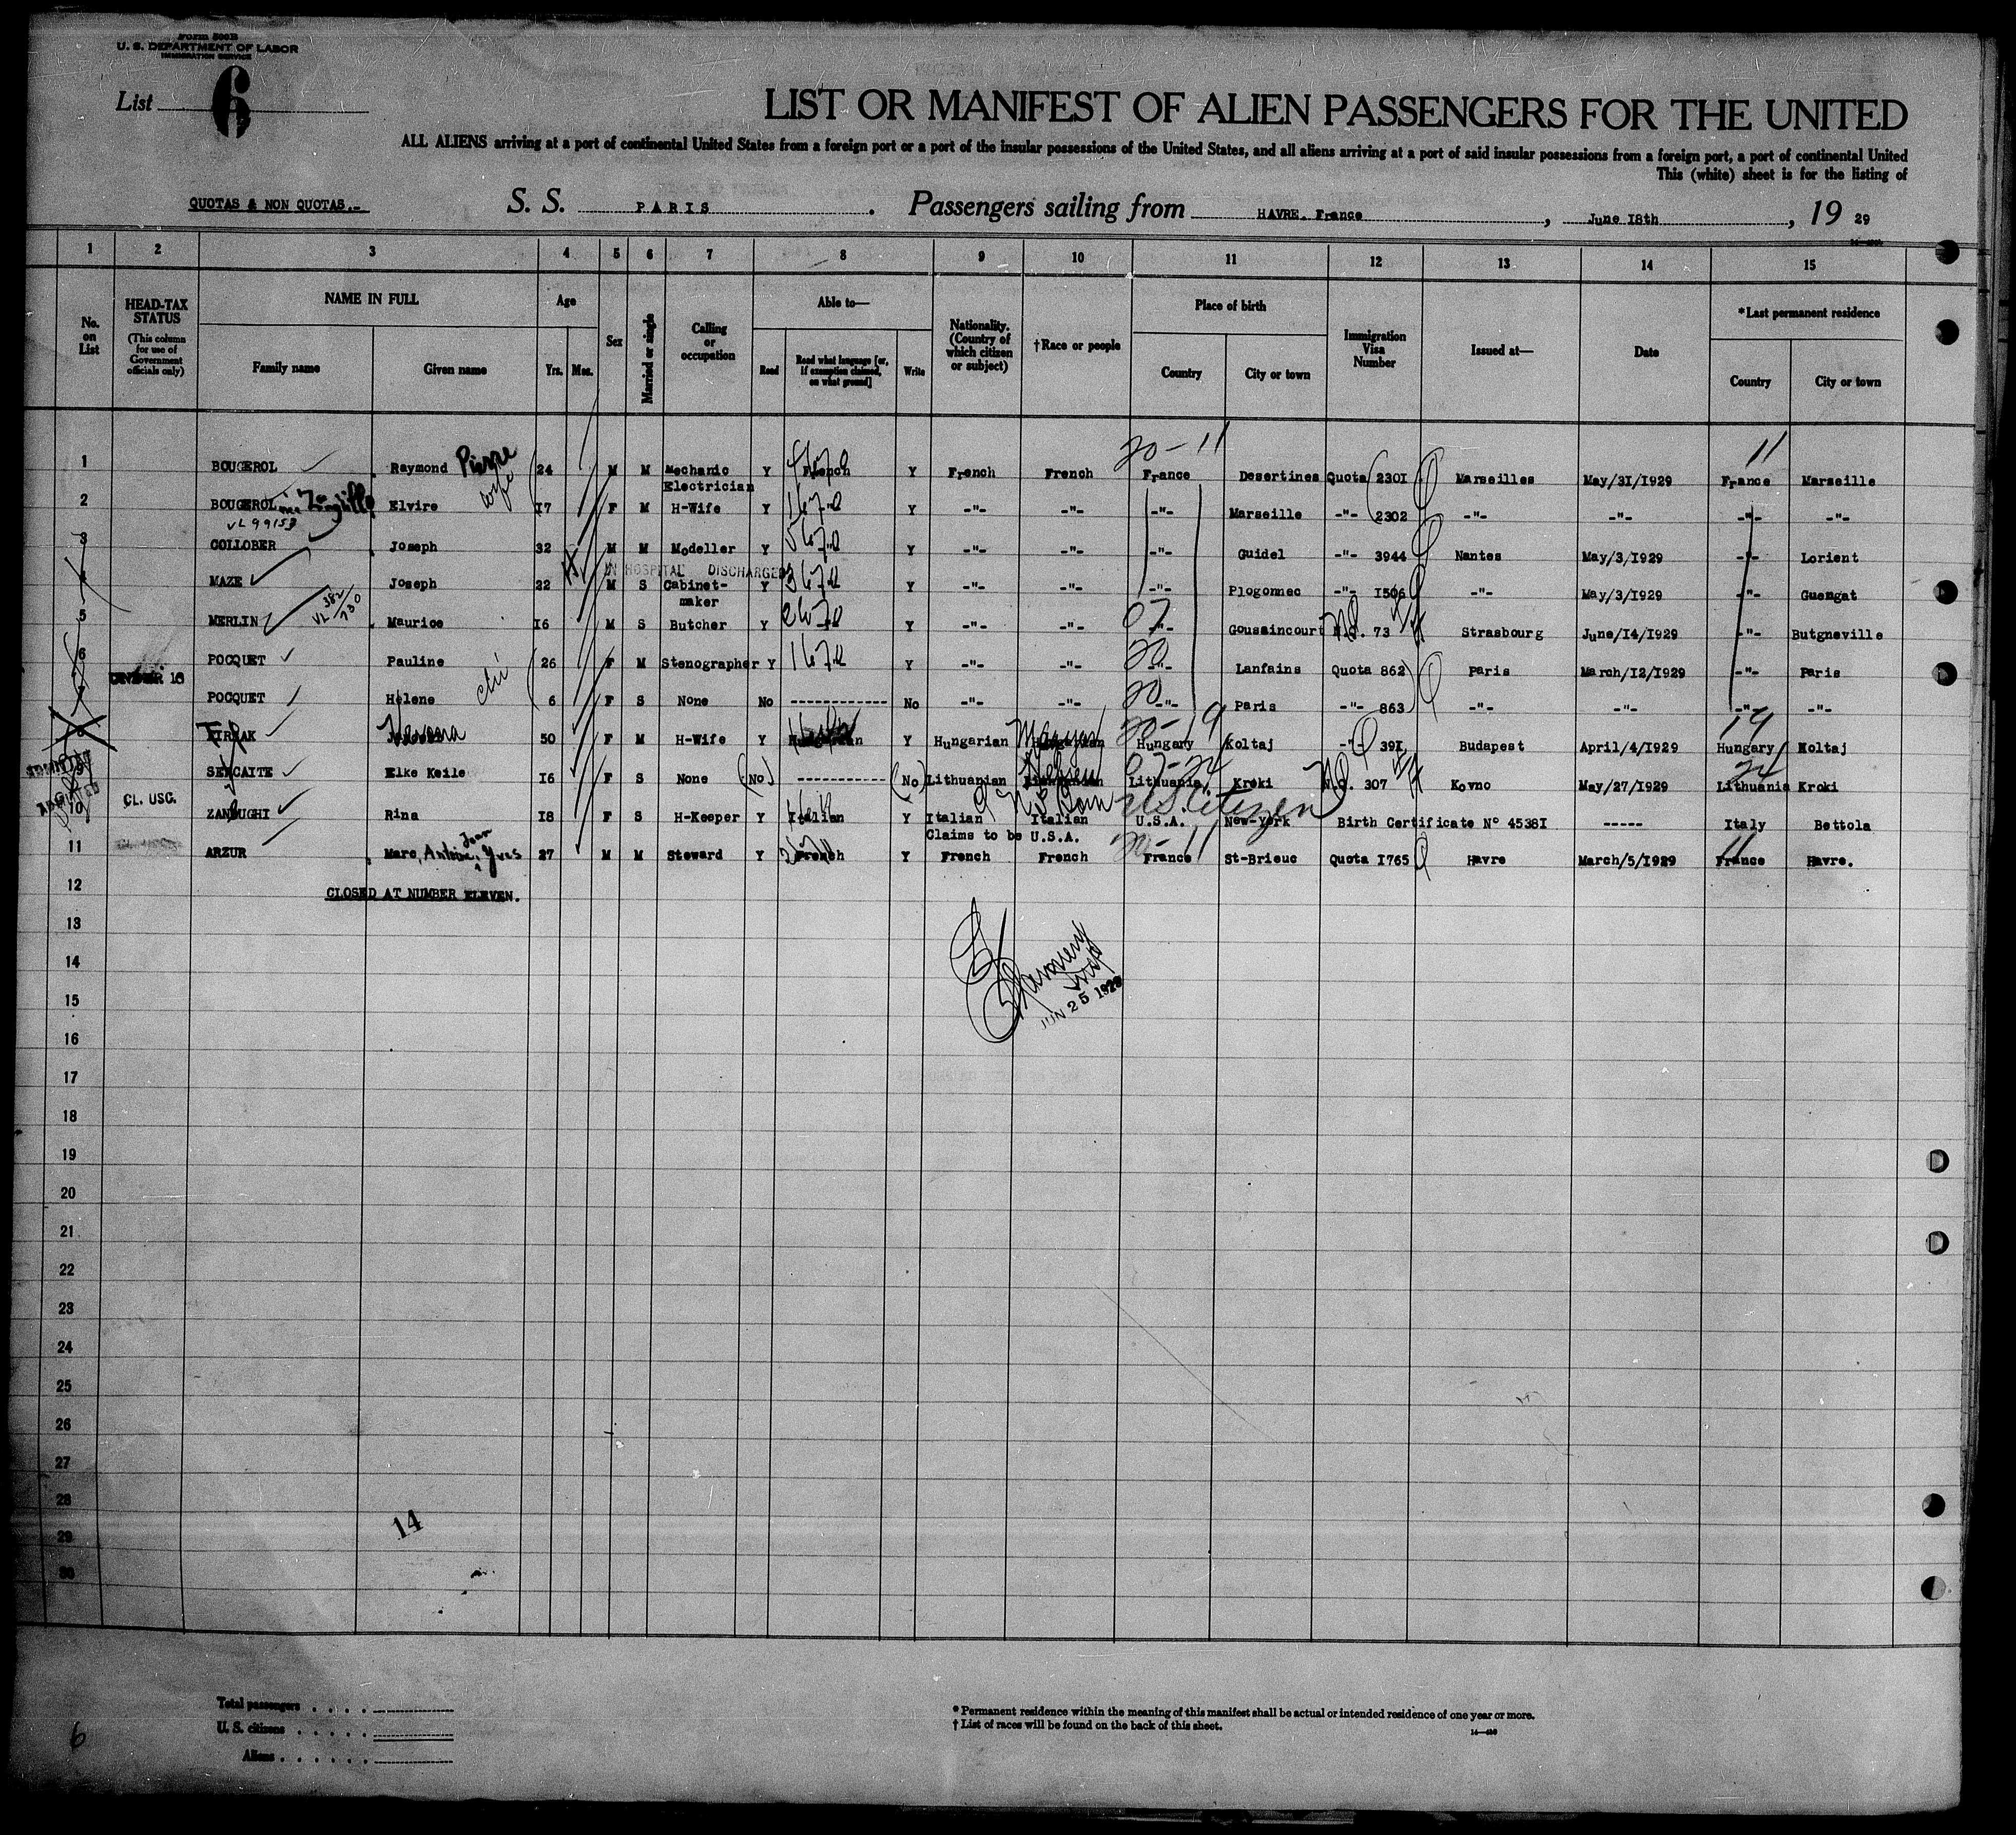 Form 500B
U. S. DEPARTMENT OF LABOR
IMMIGRATION SERVICE
List 6
LIST OR MANIFEST OF ALIEN PASSENGERS FOR THE UNITED
ALL ALIENS arriving at a port of continental United States from a foreign port or a port of the insular possessions of the United States, and all aliens arriving at a port of said insular possessions from a foreign port, a port of continental United
This (white) sheet is for the listing of
QUOTAS & NON QUOTAS.- S. S. PARIS. Passengers sailing from HAVRE. France, June 18th, 19 29
1 2 3 4 5 6 7 8 9 10 11 12 13 14 15
No. on List
HEAD-TAX STATUS (This column for use of Government officials only)
NAME IN FULL Family name Given name
Age Yrs. Mos.
Sex
Married or single
Calling or occupation
Able to— Read Read what language [or, if exemption claimed, on what ground] Write
Nationality. (Country of which citizen or subject)
†Race or people
Place of birth Country City or town
Immigration Visa Number
Issued at—
Date
*Last permanent residence Country City or town
20-11 11
1 BOUGEROL Raymond Pierre 24 M M Mechanic Electrician Y French Y French French France Desertines Quota 2301 Marseilles May/31/1929 France Marseille
2 BOUGEROL Elvire wife 17 F M H-Wife Y Y -"- -"- -"- Marseille -"- 2302 -"- -"- -"- -"-
VL 99153
3 COLLOBER Joseph 32 M M Modeller Y Y -"- -"- -"- Guidel -"- 3944 Nantes May/3/1929 -"- Lorient
IN HOSPITAL DISCHARGED
4 MAZE Joseph 22 M S Cabinet-maker Y Y -"- -"- -"- Plogonnec -"- 1506 -"- May/3/1929 -"- Guengat
VL 382/730
5 MERLIN Maurice 16 M S Butcher Y Y -"- -"- -"- Goussaincourt N.Q. 73 Strasbourg June/14/1929 -"- Butgneville
6 POCQUET Pauline 26 F M Stenographer Y Y -"- -"- -"- Lanfains Quota 862 Paris March/12/1929 -"- Paris
UNDER 16
7 POCQUET Hélene 6 F S None No ------------ No -"- -"- -"- Paris -"- 863 -"- -"- -"- -"-
8 50 F M H-Wife Y Y Hungarian Magyar 20-19 Hungary Koltaj -"- 391 Budapest April/4/1929 19 Hungary Koltaj
ADMITTED
9 Elke Keile 16 F S None (No) ------------ (No) Lithuanian Hebrew Lithuania Kroki N.Q. 307 Kovno May/27/1929 Lithuania Kroki
10 CL. USC. Rina 18 F S H-Keeper Y Italian Y Italian Italian U.S.A. New-York Birth Certificate N° 45381 ----- Italy Bettola
Born US Citizen
Claims to be U.S.A.
11 ARZUR Marc, Antoine, Jean Yves 27 M M Steward Y French Y French French 20-11 France St-Brieuc Quota 1765 Havre March/5/1929 11 France Havre.
12 CLOSED AT NUMBER ELEVEN.
13
JUN 25 1929
14
15
16
17
18
19
20
21
22
23
24
25
26
27
28
29
14
30
Total passengers
U. S. citizens
Aliens
6
* Permanent residence within the meaning of this manifest shall be actual or intended residence of one year or more.
† List of races will be found on the back of this sheet.